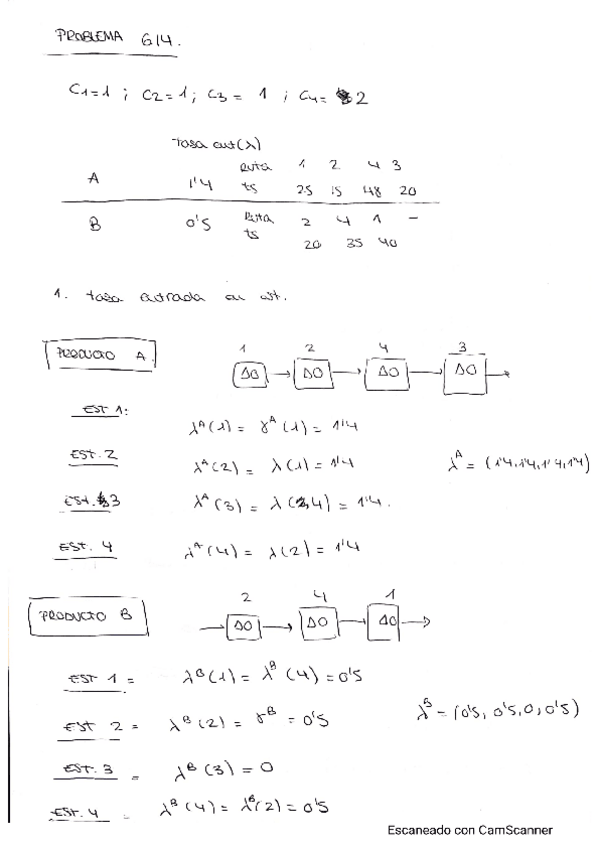 PROBLEMA 6/4.
C1=1 ; C2=1 ; C3= 1 ; C4= 2
Tasa ent(λ)
A 1'4 Ruta 1 2 4 3
ts 25 15 48 20
B 0'5 Ruta 2 4 1 -
ts 20 35 40
1. tasa entrada en est.
PRODUCTO A.
1 2 4 3
ΔO → ΔO → ΔO → ΔO →
EST 1: λᴬ(1) = γᴬ(1) = 1'4
EST. 2 λᴬ(2) = λ(1) = 1'4 λᴬ = (1'4, 1'4, 1'4, 1'4)
EST. 3 λᴬ(3) = λ(4) = 1'4.
EST. 4 λᴬ(4) = λ(2) = 1'4
PRODUCTO B
2 4 1
→ ΔO → ΔO → ΔO →
EST 1 = λᴮ(1) = λᴮ(4) = 0'5
EST 2 = λᴮ(2) = γᴮ = 0'5 λᴮ = (0'5, 0'5, 0, 0'5)
EST. 3 = λᴮ(3) = 0
EST. 4 = λᴮ(4) = λᴮ(2) = 0'5
Escaneado con CamScanner